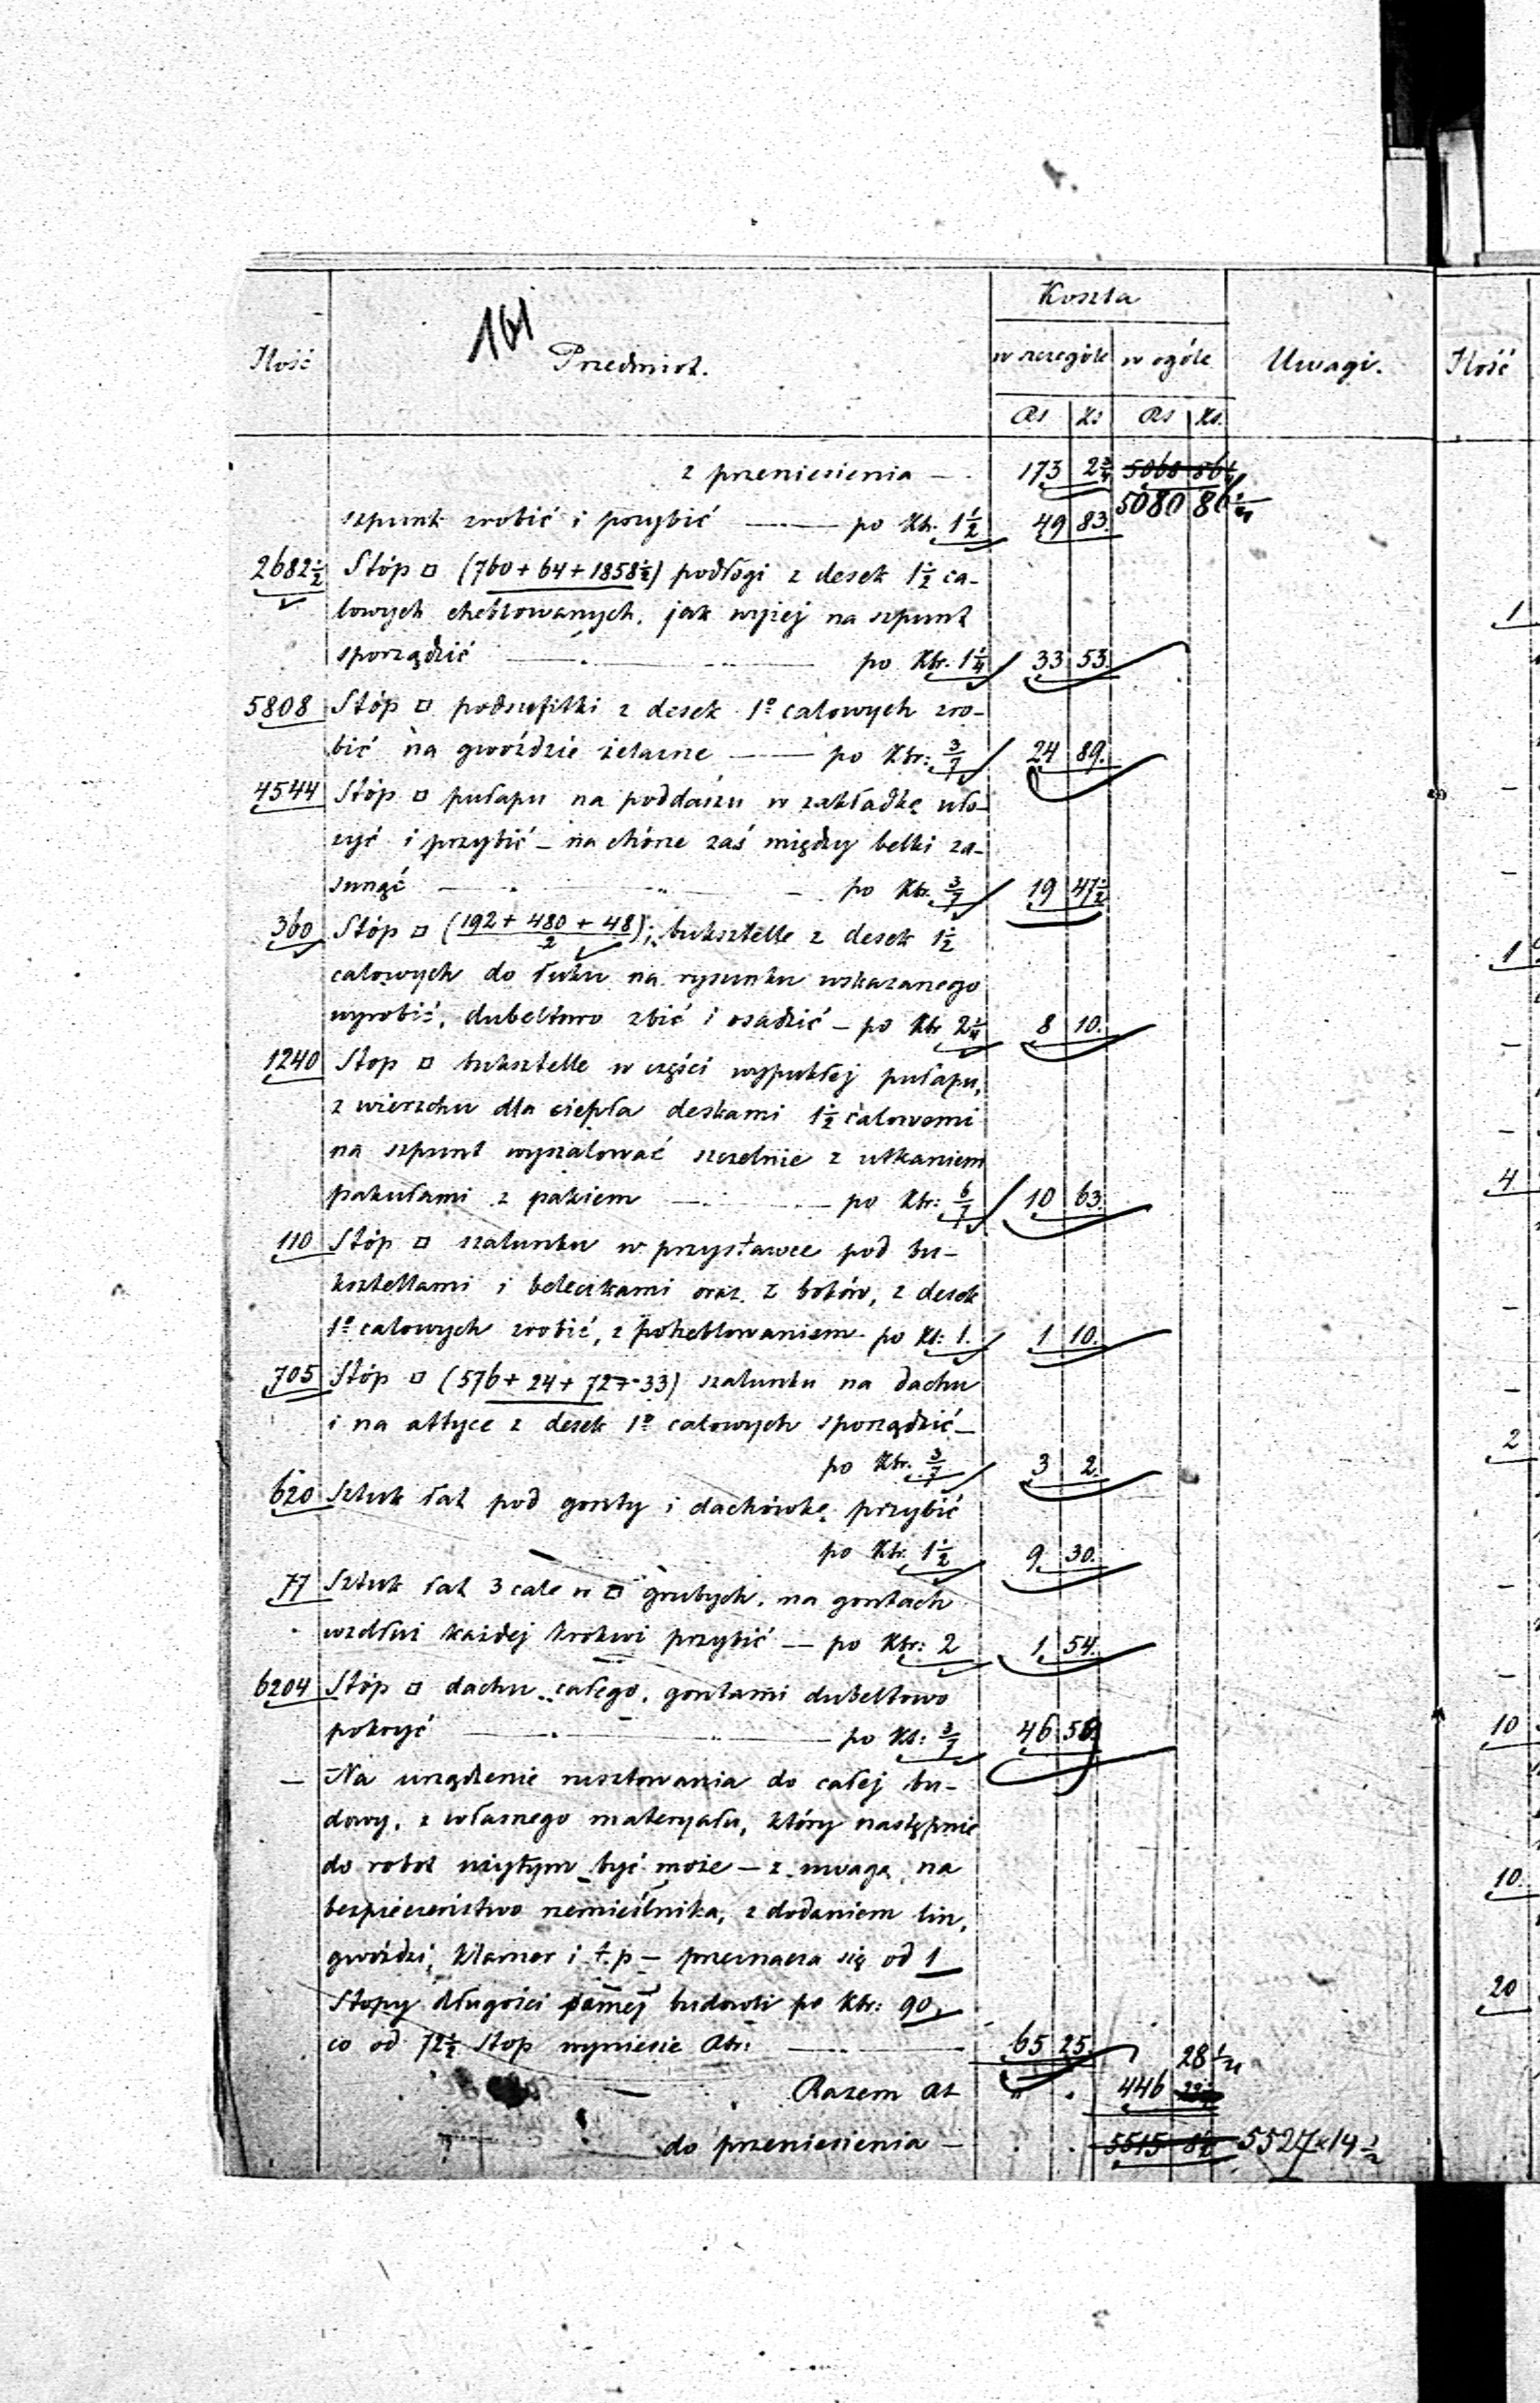 161
Ilość Przedmiot. Koszta Uwagi. Ilość
w szczególe w ogóle
Rs Ks Rs Ks.
z przeniesienia — 173 2¾ 5068 86¼
5080 86¼
szpunt zrobić i przybić — po Kbr. 1½ 49 83.
2682½ Stóp □ (760 + 64 + 1858½) podłogi z desek 1½ ca-
lowych cheblowanych, jak wyżej na szpunt
sporządzić — po Kbr. 1¼ 33 53.
5808 Stóp □ podsufitki z desek 1º calowych zro-
bić na gwoździe żelazne — po Kbr: 3/7 24 89.
4544 Stóp □ pułapu na poddaszu w zakładkę uło-
żyć i przybić — na chórze zaś między belki za-
sunąć — po Kbr. 3/7 19 47½
360 Stóp □ (192 + 480 + 48 / 2); buksztelle z desek 1½
calowych do łuku na rysunku wskazanego
wyrobić, dubeltowo zbić i osadzić — po Kbr 2¼ 8 10.
1240 Stop □ buksztelle w części wypukłej pułapu,
z wierzchu dla ciepła deskami 1½ calowemi
na szpunt wyszalować szczelnie z utkaniem
pakułami z pakiem — po Kbr: 6/7 10 63.
110 Stóp □ szalunku w przystawce pod bu-
ksztellami i beleczkami oraz z boków, z desek
1º calowych zrobić, z poheblowaniem po Ks: 1. 1 10.
705 Stóp □ (576 + 24 + 72 + 33) szalunku na dachu
i na attyce z desek 1º calowych sporządzić —
po Kbr. 3/7 3 2.
620 Sztuk łat pod gonty i dachówkę przybić
po Kbr. 1½ 9 30.
77 Sztuk łat 3 cale w □ grubych, na gontach
wzdłuż każdej krokwi przybić — po Kbr: 2 1 54.
6204 Stóp □ dachu całego, gontami dubeltowo
pokryć — po Ks: 3/7 46 58
— Na urządzenie rusztowania do całej bu-
dowy, z własnego materyału, który następnie
do robot użytym być może — z uwagą na
bezpieczeństwo rzemieślnika, z dodaniem lin,
gwoździ, klamer i t. p — przeznacza się od 1
Stopy długości samej budowli po Kbr: 90,
co od 72½ Stop wyniesie Rbr: — 65 25.
28¼
Razem Rs " . 446
do przeniesienia — . . 5515 8½ 5527 x 14½
1
1
4
2
10
10
20